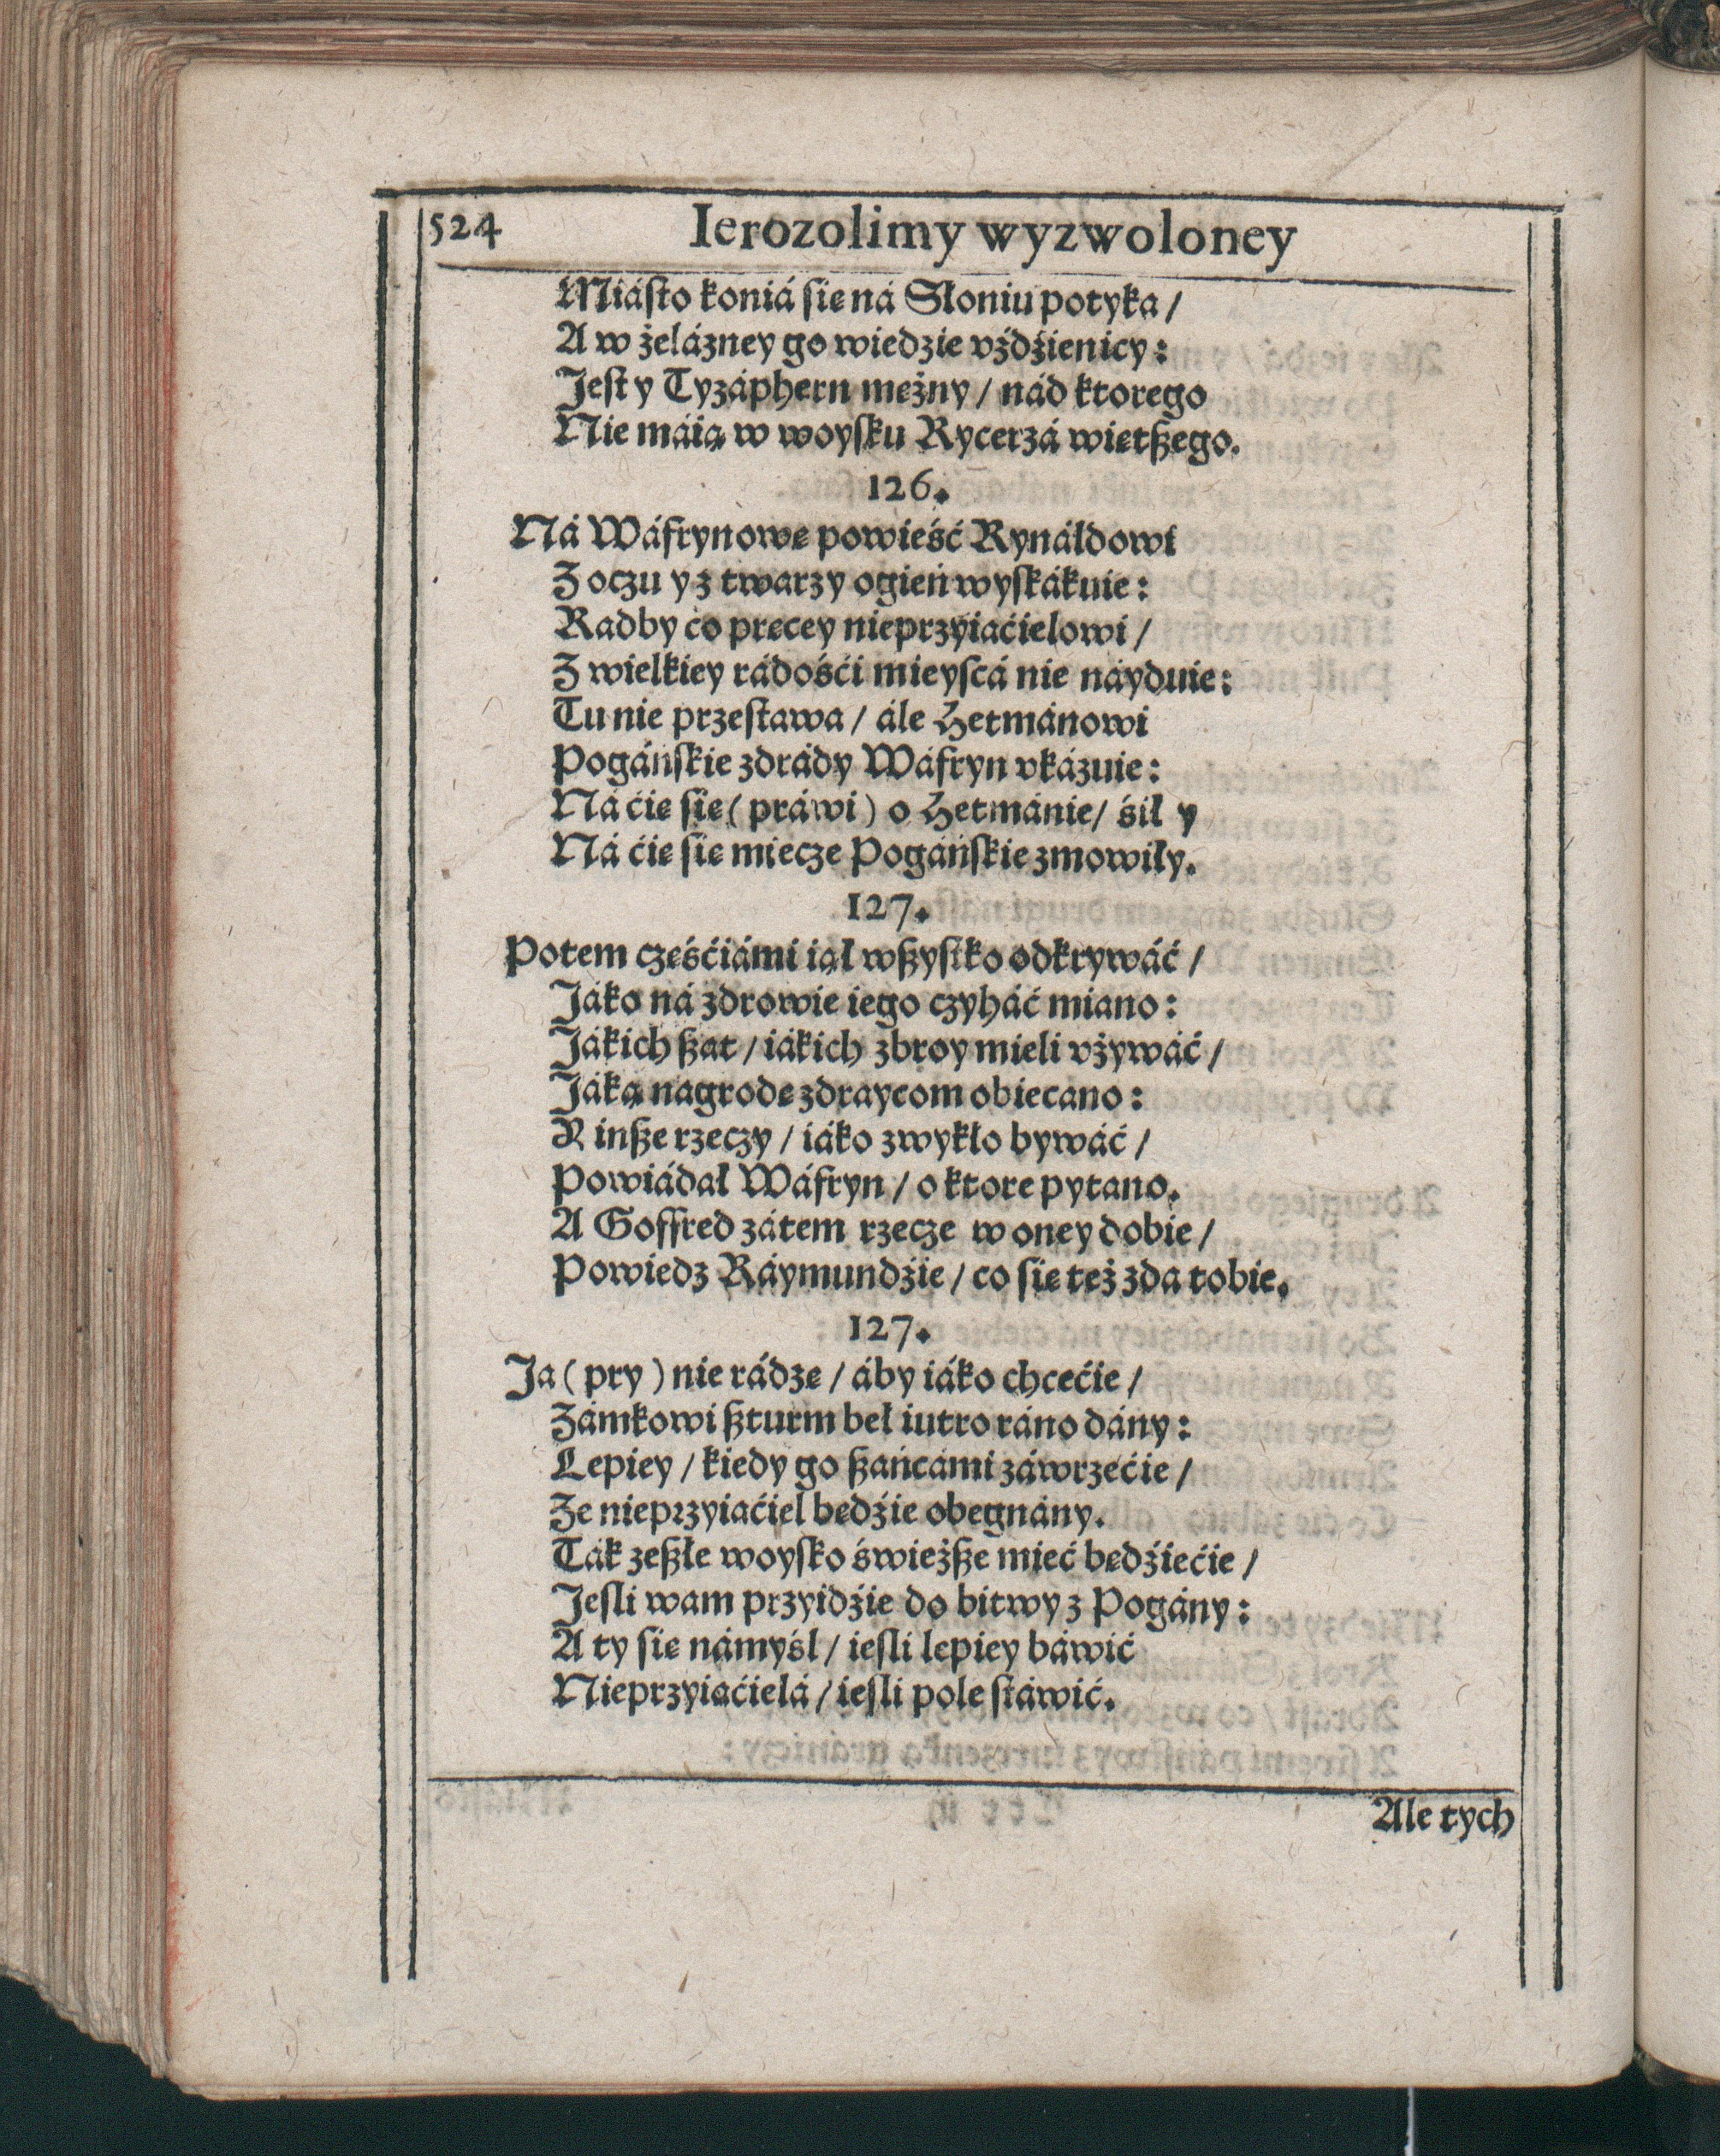 524 Ierozolimy wyzwoloney
Miásto koniá się ná Słoniu potyka /
A w żelázney go wiedzie vźdźienicy:
Jest y Tyzáphern mężny / nád ktorego
Nie máią w woysku Rycerzá większego.
126.
Ná Wáfrynowę powieść Rynáldowi
Z oczu y z twarzy ogień wyskákuie:
Radby co pręcey nieprzyiaćielowi /
Z wielkiey rádośći mieyscá nie náyduie:
Tu nie przestawa / ále Hetmánowi
Pogáńskie zdrády Wáfryn vkázuie:
Ná ćię się ( práwi ) o Hetmánie / śił y
Ná ćię się miecze Pogáńskie zmowiły.
127.
Potem częśćiámi iął wszystko odkrywáć /
Jáko ná zdrowie iego czyháć miano:
Jákich szat / iákich zbroy mieli vżywáć /
Jáką nagrodę zdraycom obiecano:
Y insze rzeczy / iáko zwykło bywáć /
Powiádał Wáfryn / o ktore pytano.
A Goffred zátem rzecze w oney dobie /
Powiedz Ráymundźie / co się też zda tobie.
127.
Ja ( pry ) nie rádzę / áby iáko chcećie /
Zámkowi szturm beł iutro ráno dány:
Lepiey / kiedy go szańcámi záwrzećie /
Że nieprzyiaćiel będźie obegnány.
Ták zeszłe woysko świeższe mieć będźiećie /
Jesli wam przyidźie do bitwy z Pogány:
A ty się námyśl / iesli lepiey báwić
Nieprzyiaćielá / iesli pole stáwić.
Ale tych